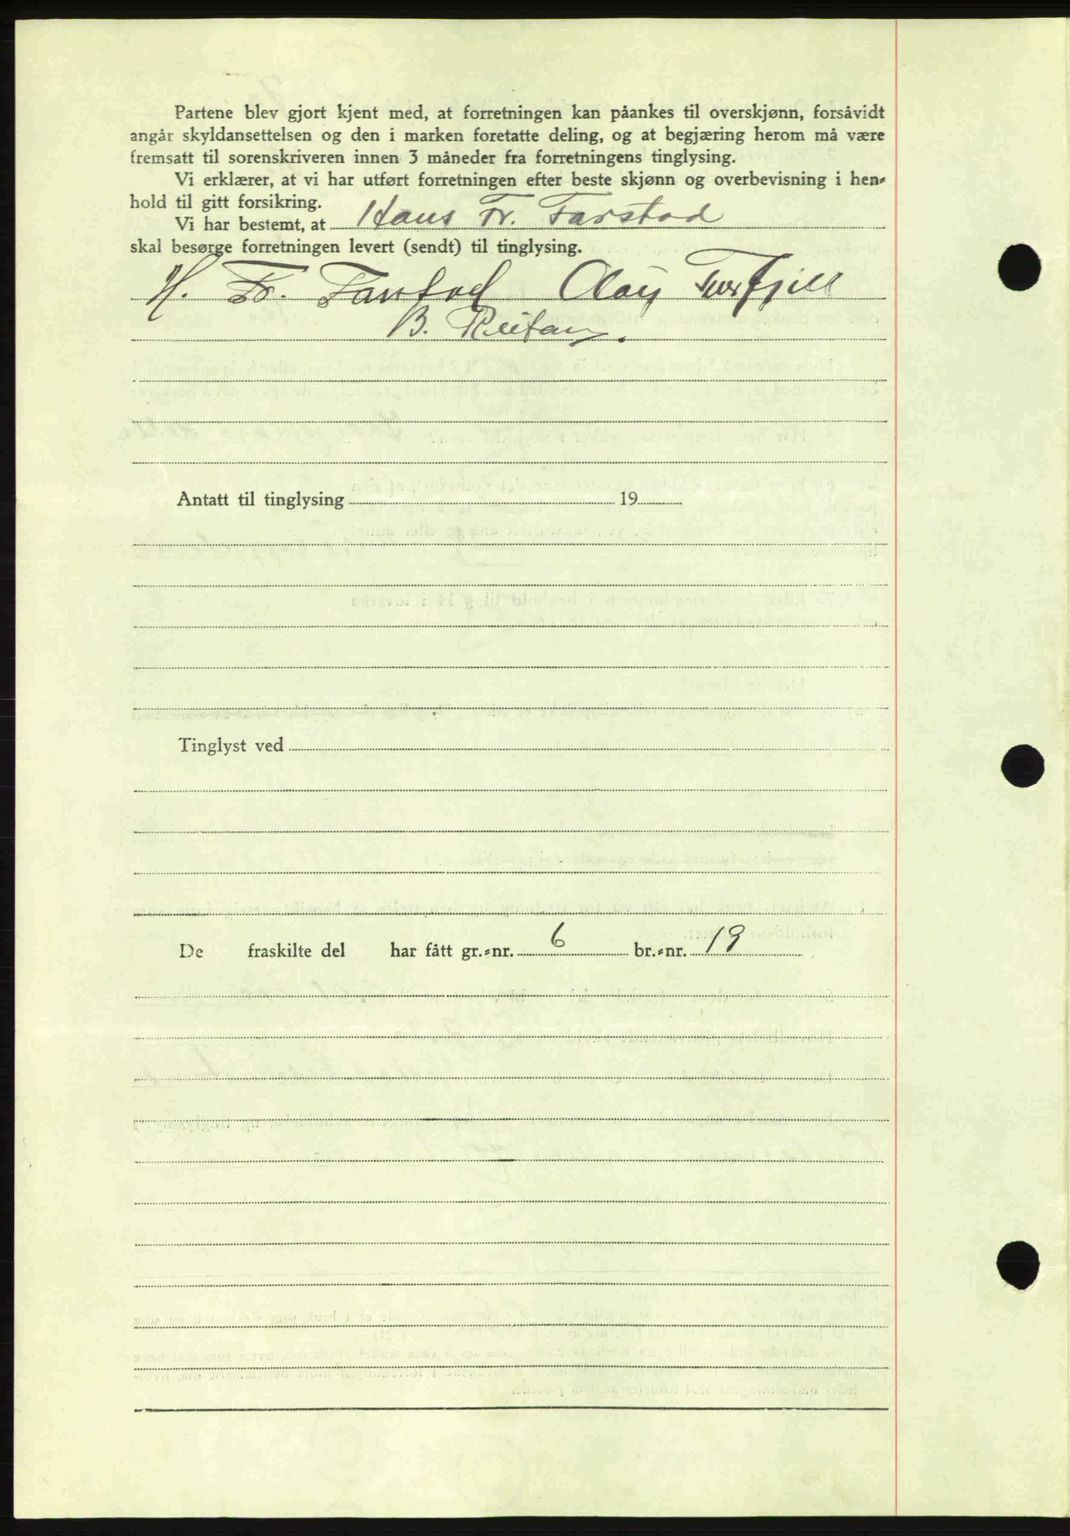 Partene blev gjort kjent med, at forretningen kan påankes til overskjønn, forsåvidt
angår skyldansettelsen og den i marken foretatte deling, og at begjæring herom må være
fremsatt til sorenskriveren innen 3 måneder fra forretningens tinglysing.
Vi erklærer, at vi har utført forretningen efter beste skjønn og overbevisning i hen-
hold til gitt forsikring.
Vi har bestemt, at Hans Fr. Farstad
skal besørge forretningen levert (sendt) til tinglysing.
H. Fr. Farstad Olay
B. Reitan.
Antatt til tinglysing 19
Tinglyst ved
De fraskilte del har fått gr.-nr. 6 br.-nr. 19